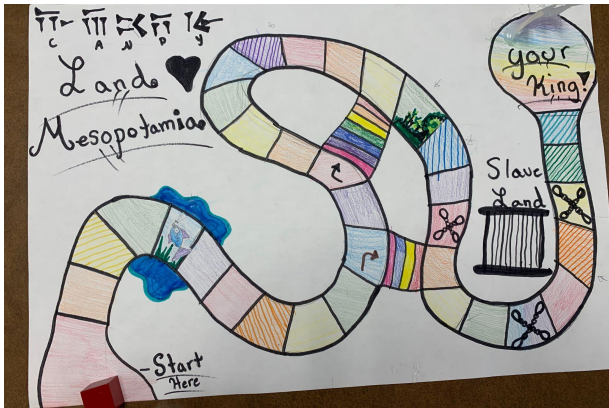 C A N D Y
Land
Mesopotamia
your
King!
Slave
Land
-Start
Here